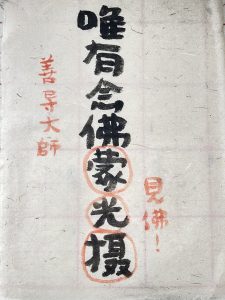 唯有念佛蒙光摄
善导大師
見佛！